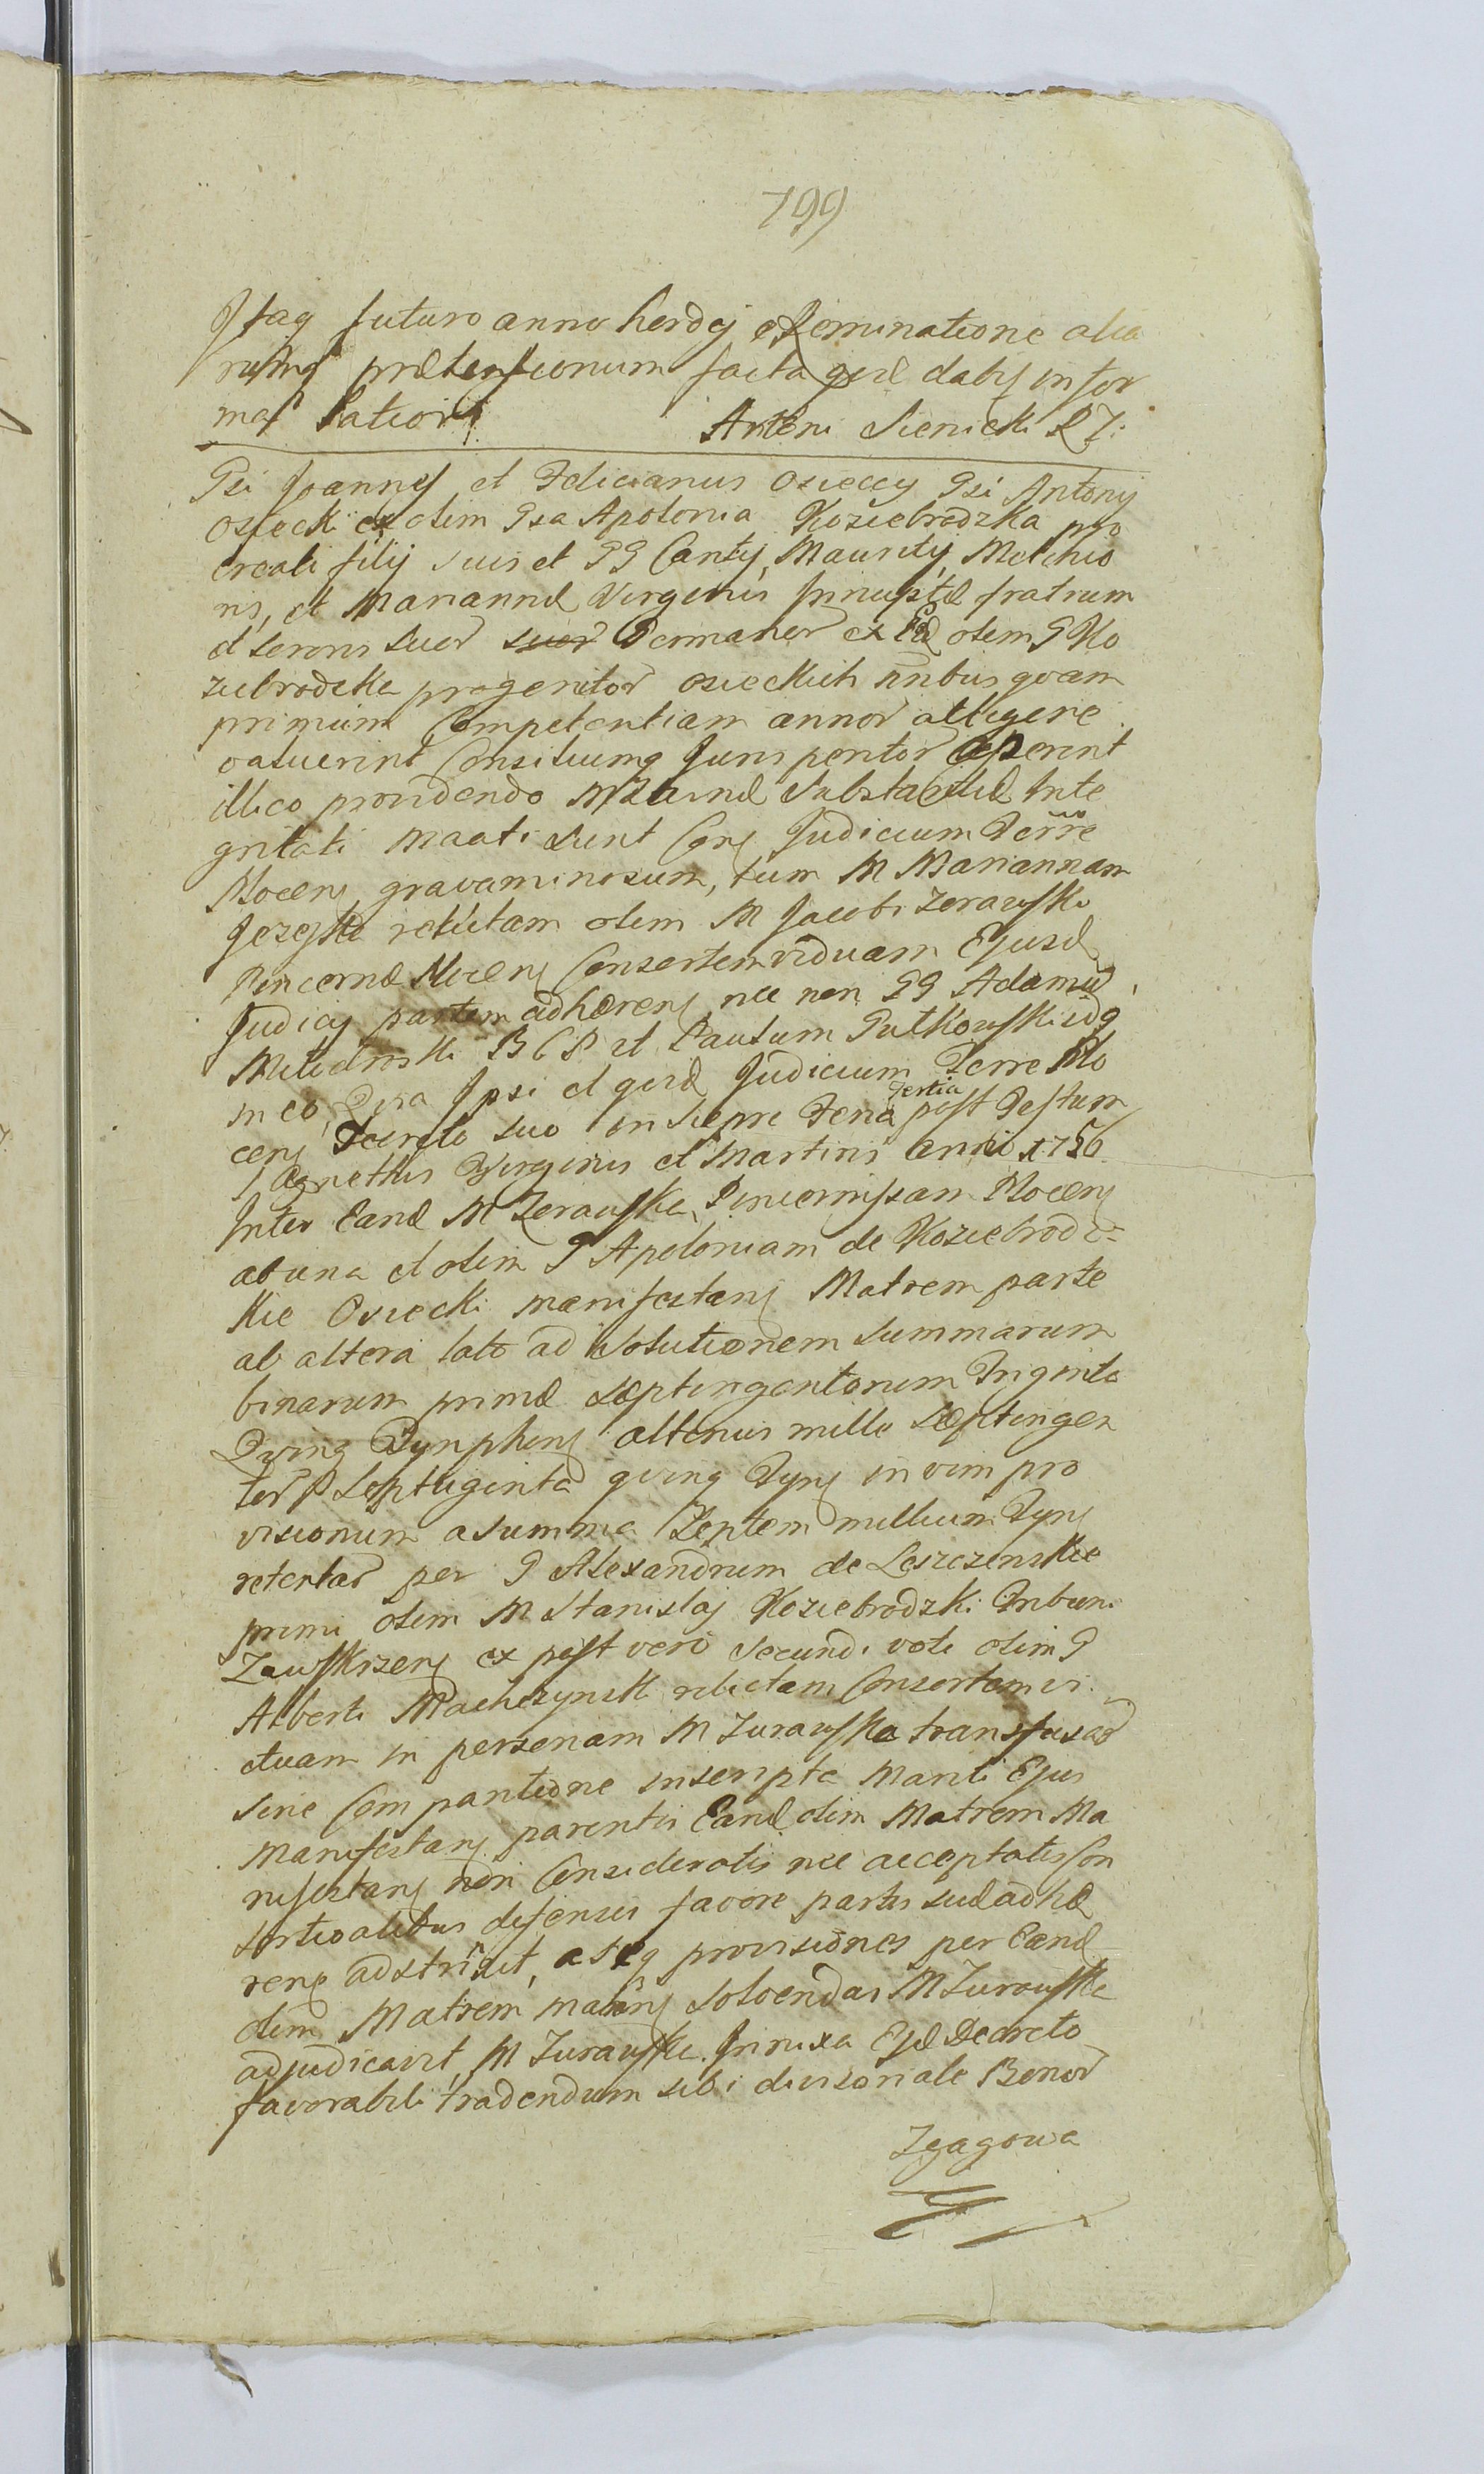 799
futuro anno herdej eliminatione alia
prætensionum facta dabij infor
Antoni Sienicki
Psi Joannes et Felicianus Osieccy Psi Antonij
Osiecki ex olim Psa Apolonia Koziebrodzka pro
creati filij suis et PP Cantij, Maurityj, Melchio
ris, et Mariannæ Virginis Innuptæ fratrum
et Sororis suor suor Germanor ex Ead olim P Ko
ziebrodzka progenitor Osieckich nibus quam
primum Competentiam annor attigere
valuerint Consiliumq Juris peritor
illico providendo Substa Inte
gritati sunt Judicium Terre
Plocens gravaminosum, tum M Mariannam
relictam olim M Jacobi Zerawski
Pincernæ Plocens Consortem viduam Ejusd
Judicij partem adhærens nec non PP Adamum
Miludroski B C P et Paulum Putkowski idq
in eo, Qvia Ipsi et Judicium Terre Plo
cens Decreto suo in Sieprc Feria Tertia post Festum
S Agnethis Virginis et Martiris anni 1756
Inter Eand M Zerawska Pincernissam Plocens
ab una et olim P Apoloniam de Koziebrodz=
kie Osiecki manifestans Matrem parte
ab altera lato ad Solutionem summarum
binarum primæ Septingentorum Triginta
Qvinq Tynphens alterius mille Septingen
tor Septuginta qvinq Tyns in vim pro
visionum a summa Septem millium Tyns
retentar per P Alexandrum de Leszczenskie
primi olim M Stanislaj Koziebrodzki Tribuni
Zawskrzens ex post vero secundi voti olim P
Alberti relictam Consortem vi
duam in personam M Zurawska transfusar
sine Com partione inscripta Mariti Ejus
Manifestans parentis Eand olim Matrem Ma
nifestans non Consideratis nec acceptatis Con
defensis favore partis suæ adhæ
rens adstrinxit, provisiones per Eand
olim Matrem mans solvendas M Zurawska
adjudicavit, M Zurawska Innixa Decreto
favorabili tradendum sibi divisoriale Bonor
Zgagowa